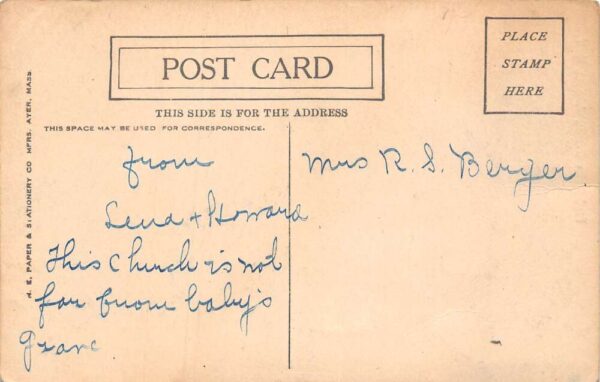 POST CARD
PLACE
STAMP
HERE
THIS SIDE IS FOR THE ADDRESS
THIS SPACE MAY BE USED FOR CORRESPONDENCE.
H. E. PAPER & STATIONERY CO MFRS. AYER, MASS.
from
Lena + Howard
This Church is not
far from baby's
grave
Mrs R. S. Berger